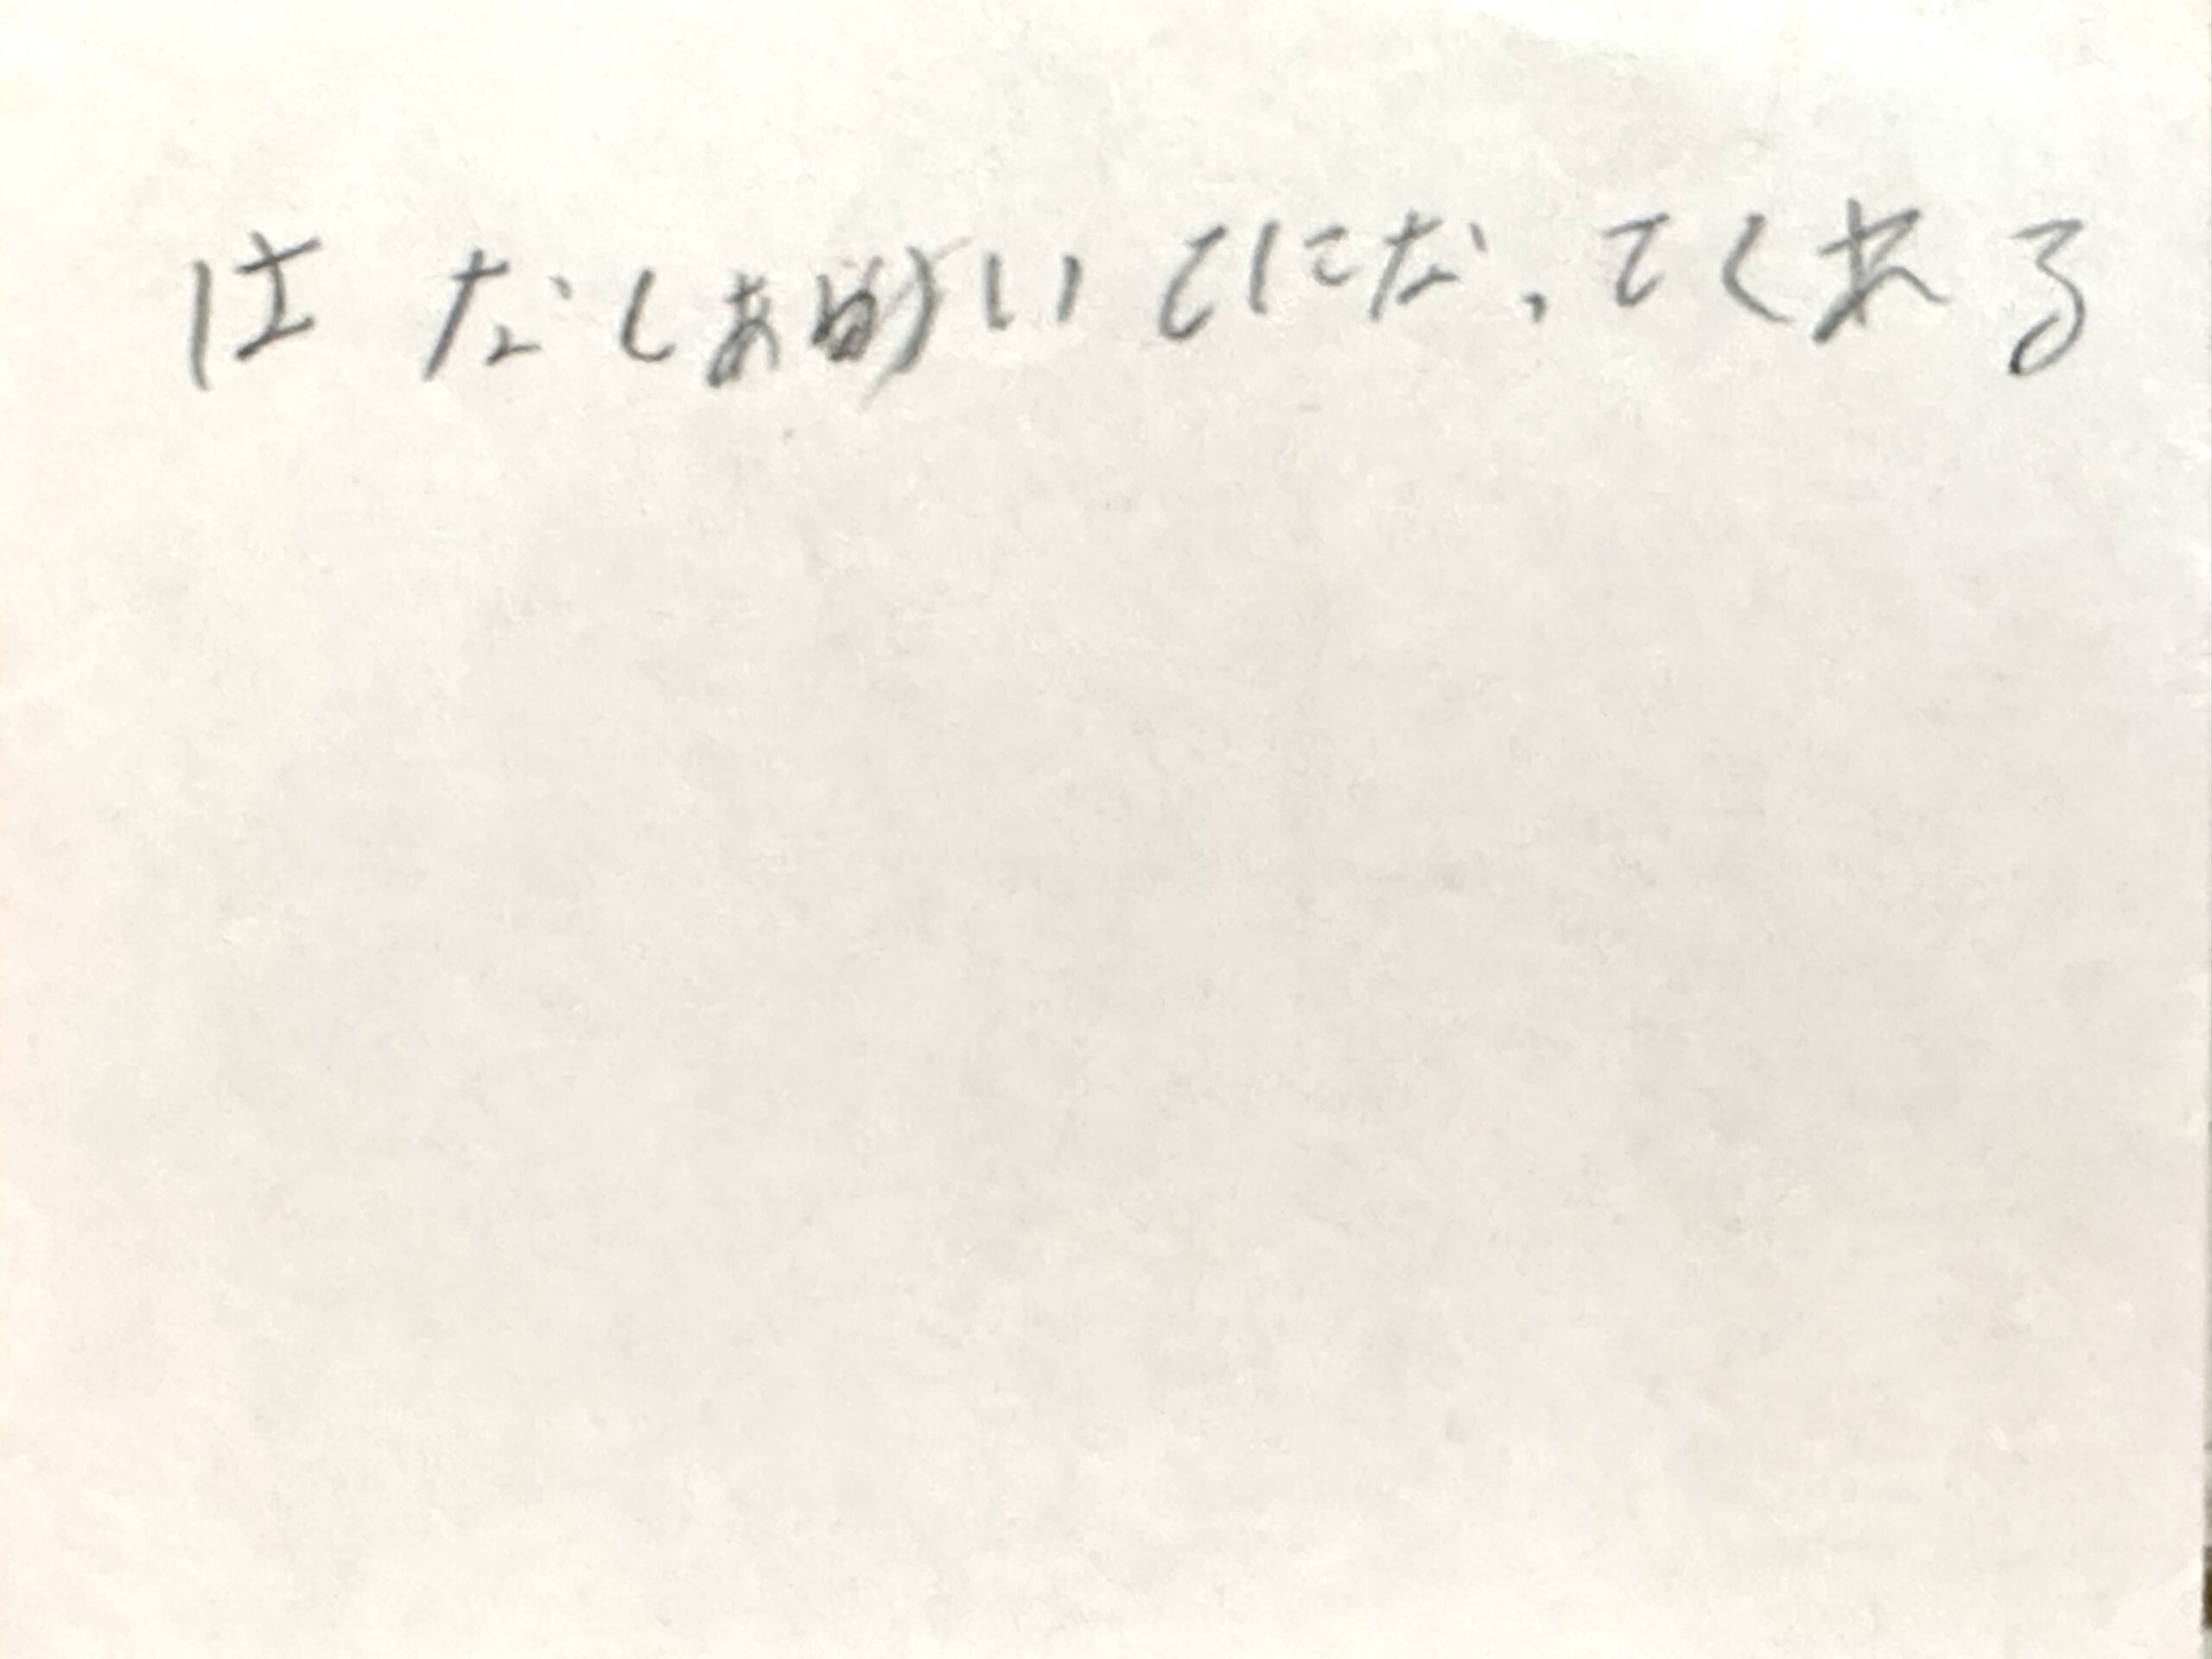 はなしあいてになってくれる